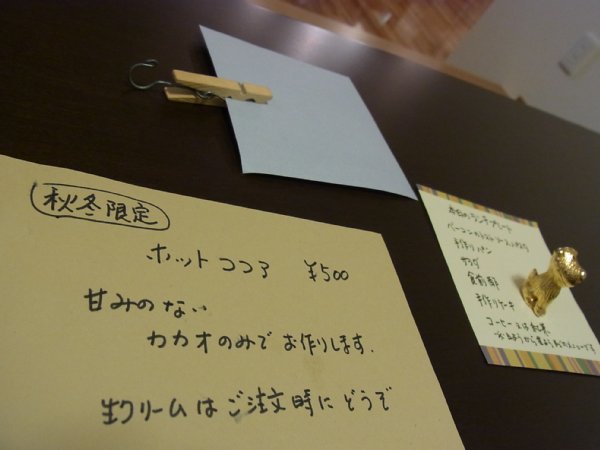 秋冬限定
ホットココア ¥500
甘みのない
カカオのみでお作りします.
生クリームはご注文時にどうぞ
本日のランチプレート
手作りパン
サラダ
手作りケーキ
コーヒー又は紅茶